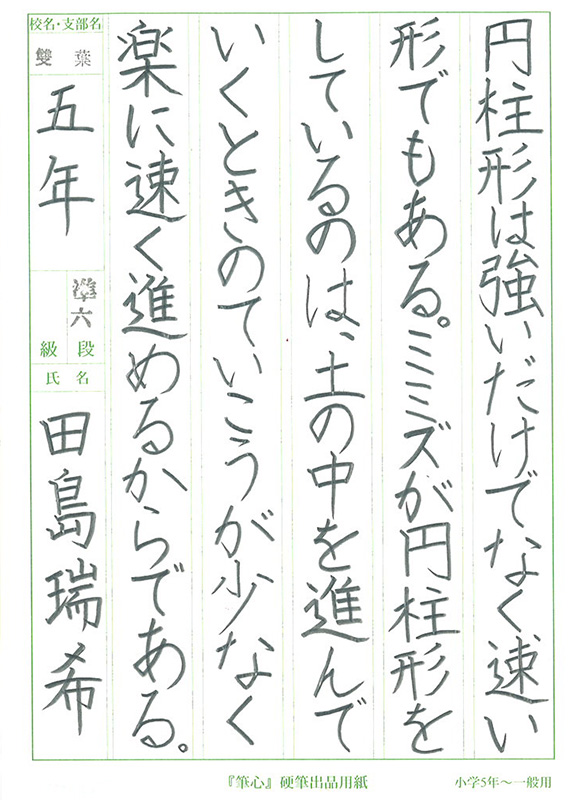 円柱形は強いだけでなく速い
形でもある。ミミズが円柱形を
しているのは、土の中を進んで
いくときのていこうが少なく
楽に速く進めるからである。
校名・支部名
雙葉
五年
準六
段
級
氏名
田島瑞希
『筆心』硬筆出品用紙
小学5年〜一般用